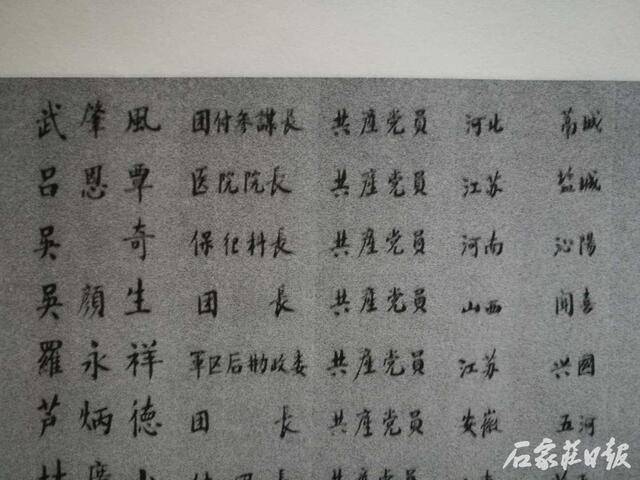 武肇風 团付参謀長 共產党员 河北 藁城
吕恩覃 医院院長 共產党员 江苏 盐城
吴奇 保化科長 共產党员 河南 沁陽
吴顔生 团長 共產党员 山西 闻喜
羅永祥 军区后勤政委 共產党员 江苏 兴國
芦炳德 团長 共產党员 安徽 五河
石家莊日報